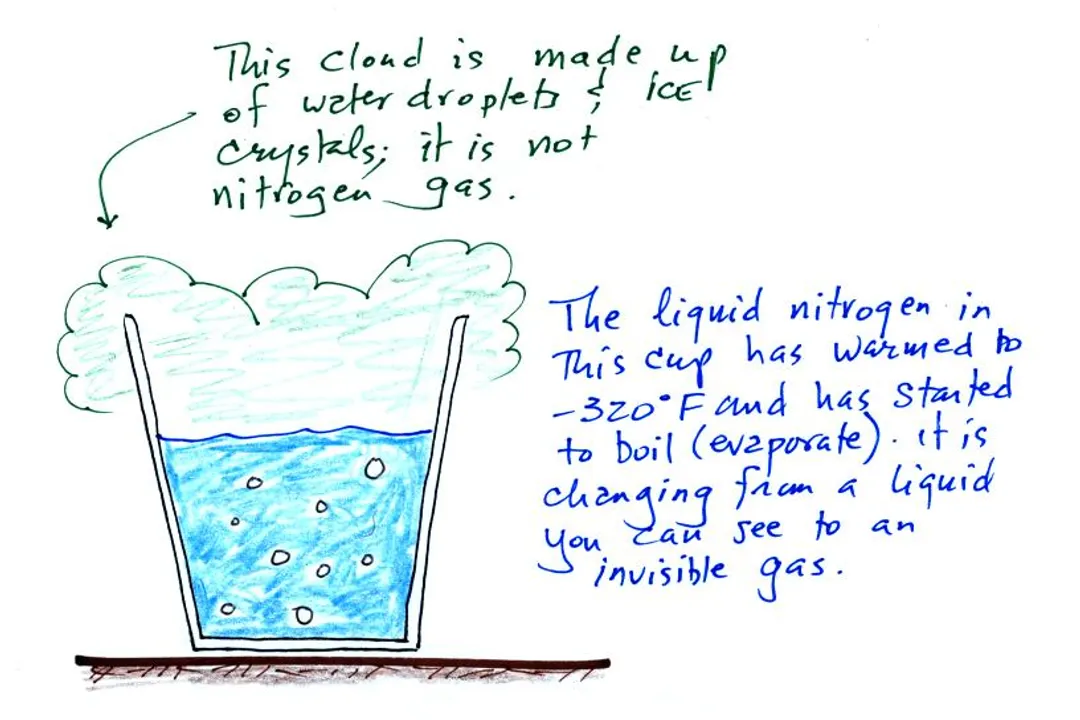 This cloud is made up
of water droplets & ICE
crystals; it is not
nitrogen gas.
The liquid nitrogen in
This cup has warmed to
-320°F and has started
to boil (evaporate). it is
changing from a liquid
you can see to an
invisible gas.